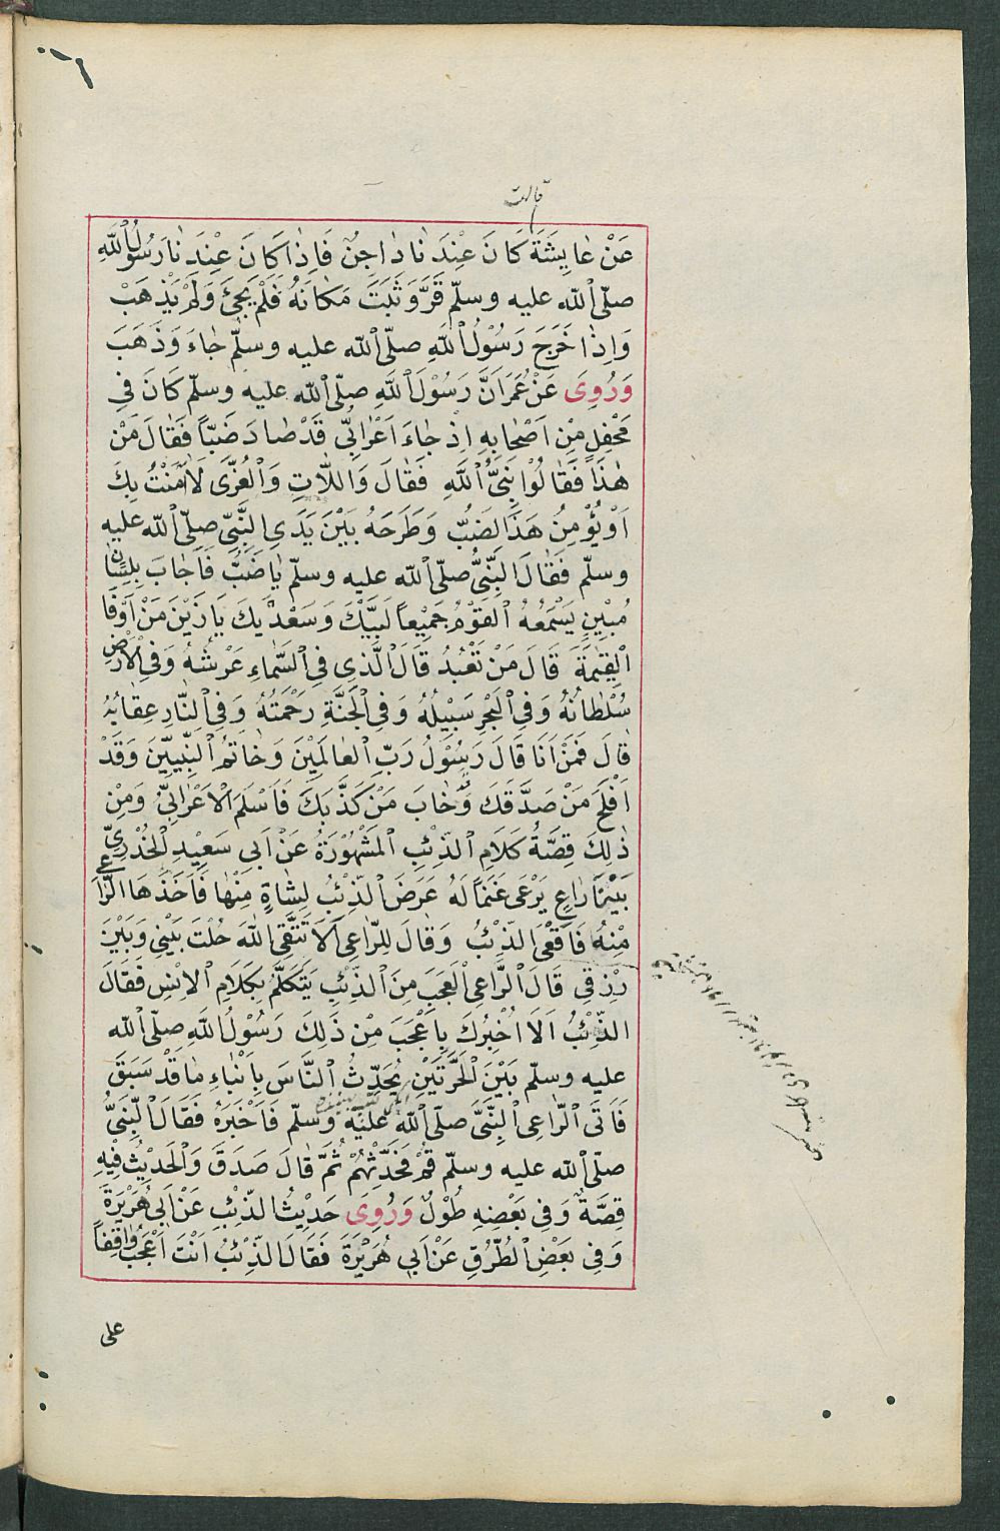 قالت
عَنْ عَايِشَةَ كَانَ عِنْدَنَا دَاجِنٌ فَاِذَا كَانَ عِنْدَنَا رَسُولُ اللّٰهِ
صلّى اللّٰه عليه وسلّم قَرَّ وَثَبَتَ مَكَانَهُ فَلَمْ يَجِئْ وَلَمْ يَذْهَبْ
وَاِذَا خَرَجَ رَسُوْلُ اللّٰهِ صلّى اللّٰه عليه وسلّم جَاءَ وَذَهَبَ
وَرُوِىَ عَنْ عُمَرَ اَنَّ رَسُوْلَ اللّٰهِ صلّى اللّٰه عليه وسلّم كَانَ فِى
مَحْفِلٍ مِنْ اَصْحَابِهِ اِذْ جَاءَ اَعْرَابِىٌّ قَدْ صَادَ ضَبّاً فَقَالَ مَنْ
هٰذَا فَقَالُوْا نَبِىُّ اللّٰهِ فَقَالَ وَاللَّاتِ وَالْعُزّٰى لَا اٰمَنْتُ بِكَ
اَوْ يُؤْمِنُ هَذَا الضَبُّ وَطَرَحَهُ بَيْنَ يَدَىِ النَّبِىِّ صلّى اللّٰه عليه
وسلّم فَقَالَ النَّبِىُّ صلّى اللّٰه عليه وسلّم يَا ضَبُّ فَاَجَابَ بِلِسَانٍ
مُبِيْنٍ يَسْمَعُهُ الْقَوْمُ جَمِيْعاً لَبَّيْكَ وَسَعْدَيْكَ يَا زَيْنَ مَنْ اَوْفَا
الْقِيٰمَةَ قَالَ مَنْ تَعْبُدُ قَالَ الَّذِى فِى السَّمَاءِ عَرْشُهُ وَفِى الْاَرْضِ
سُلْطَانُهُ وَفِى الْبَحْرِ سَبِيْلُهُ وَفِى الْجَنَّةِ رَحْمَتُهُ وَفِى النَّارِ عِقَابُهُ
قَالَ فَمَنْ اَنَا قَالَ رَسُوْلُ رَبِّ الْعَالَمِيْنَ وَخَاتَمُ النَّبِيّيْنَ وَقَدْ
اَفْلَحَ مَنْ صَدَّقَكَ وَخَابَ مَنْ كَذَّبَكَ فَاَسْلَمَ الْاَعْرَابِىُّ وَمِنْ
ذٰلِكَ قِصَّةُ كَلَامِ الذِّئْبِ الْمَشْهُوْرَةُ عَنْ اَبِى سَعِيْدِ الْخُدْرِىِّ
بَيْنَا رَاعٍ يَرْعَى غَنَماً لَهُ عَرَضَ الذِّئْبُ لِشَاةٍ مِنْهَا فَاَخَذَهَا الرَّاعِى
مِنْهُ فَاَقْعَى الذِّئْبُ وَقَالَ لِلرَّاعِى اَلَا تَتَّقِى اللّٰهَ حُلْتَ بَيْنِى وَبَيْنَ
رِزْقِى قَالَ الرَّاعِى الْعَجَبَ مِنَ الذِّئْبِ يَتَكَلَّمُ بِكَلَامِ الْاِنْسِ فَقَالَ
الذِّئْبُ اَلَا اُخْبِرُكَ بِاَعْجَبَ مِنْ ذَلِكَ رَسُوْلُ اللّٰهِ صلّى اللّٰه
عليه وسلّم بَيْنَ الْحَرَّتَيْنِ يُحَدِّثُ النَّاسَ بِاَنْبَاءِ مَا قَدْ سَبَقَ
فَاَتَى الرَّاعِى النَّبِىَّ صلّى اللّٰه عليه وسلّم فَاَخْبَرَهُ فَقَالَ النَّبِىُّ
صلّى اللّٰه عليه وسلّم قُمْ فَحَدِّثْهُمْ ثُمَّ قَالَ صَدَقَ وَالْحَدِيْثُ فِيْهِ
قِصَّةٌ وَفِى بَعْضِهِ طُوْلٌ وَرُوِىَ حَدِيْثُ الذِّئْبِ عَنْ اَبِى هُرَيْرَةَ
وَفِى بَعْضِ الطُّرُقِ عَنْ اَبِى هُرَيْرَةَ فَقَالَ الذِّئْبُ اَنْتَ اَعْجَبُ وَاقِفاً
على